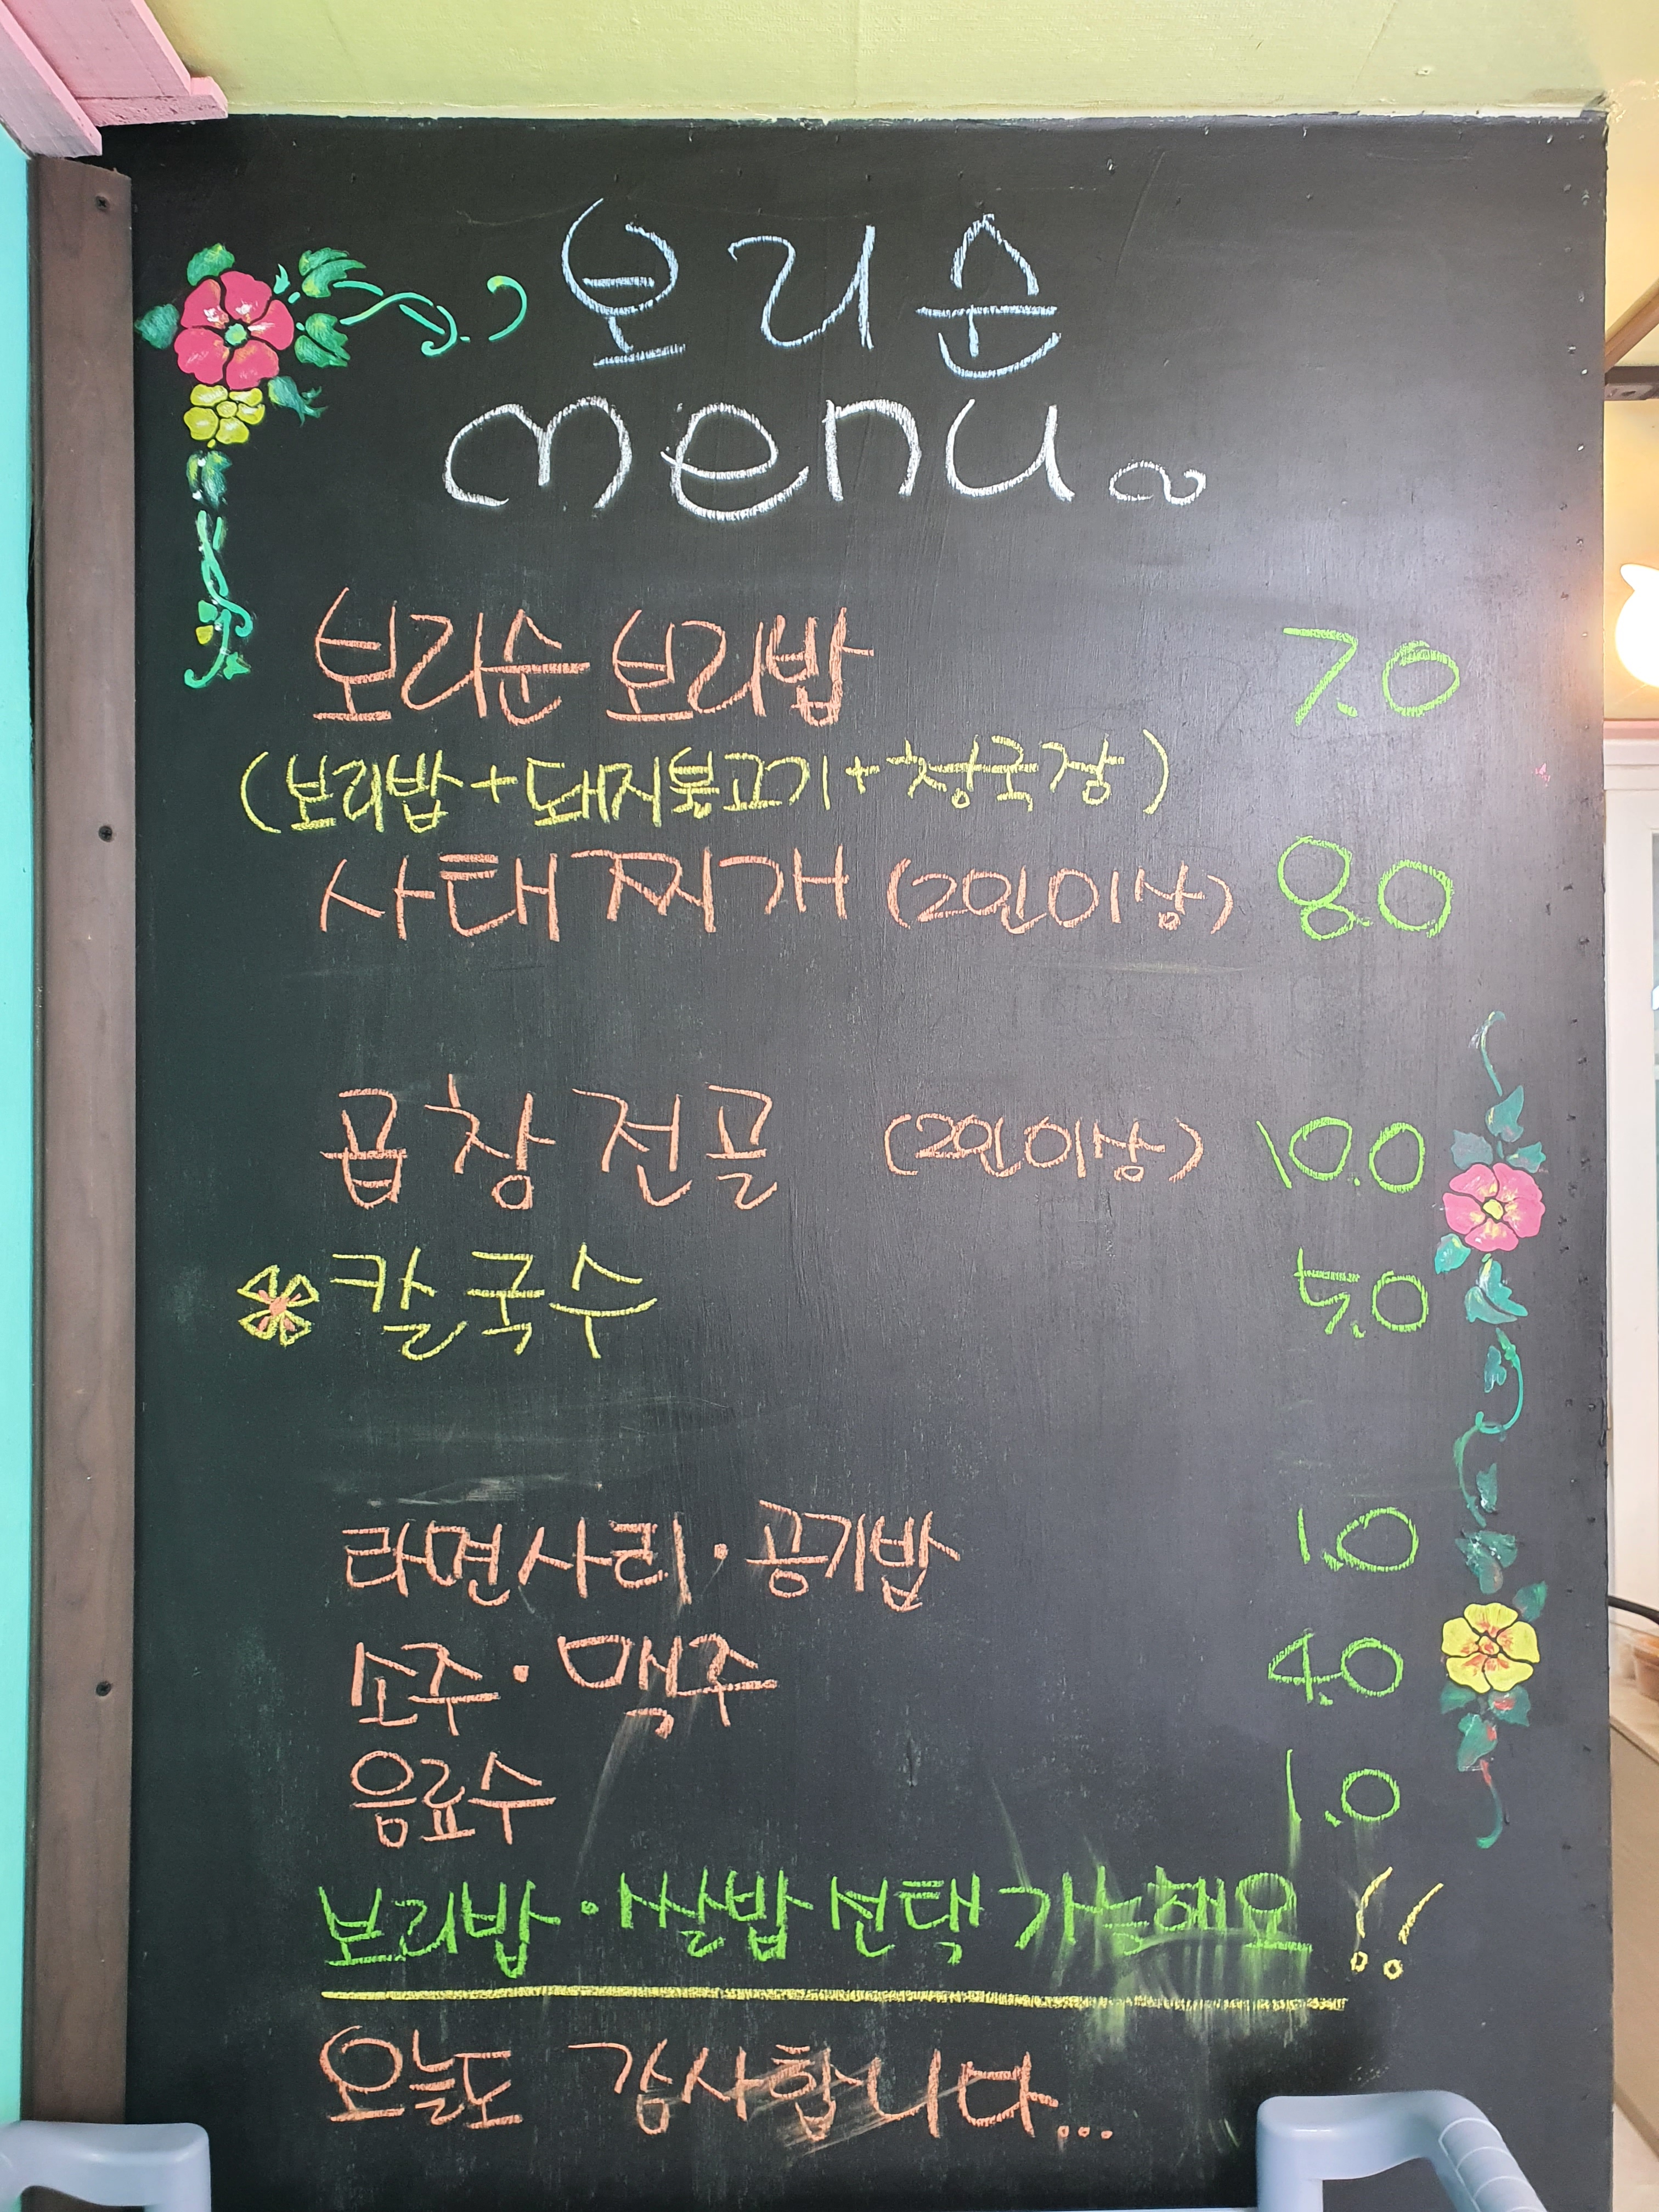 보리순
menu~
보리순 보리밥 7.0
(보리밥+돼지불고기+청국장)
사태찌개 (2인이상) 8.0
곱창전골 (2인이상) 10.0
칼국수 5.0
라면사리·공기밥 1.0
소주·맥주 4.0
음료수 1.0
보리밥·쌀밥 선택 가능해요!!
오늘도 감사합니다...